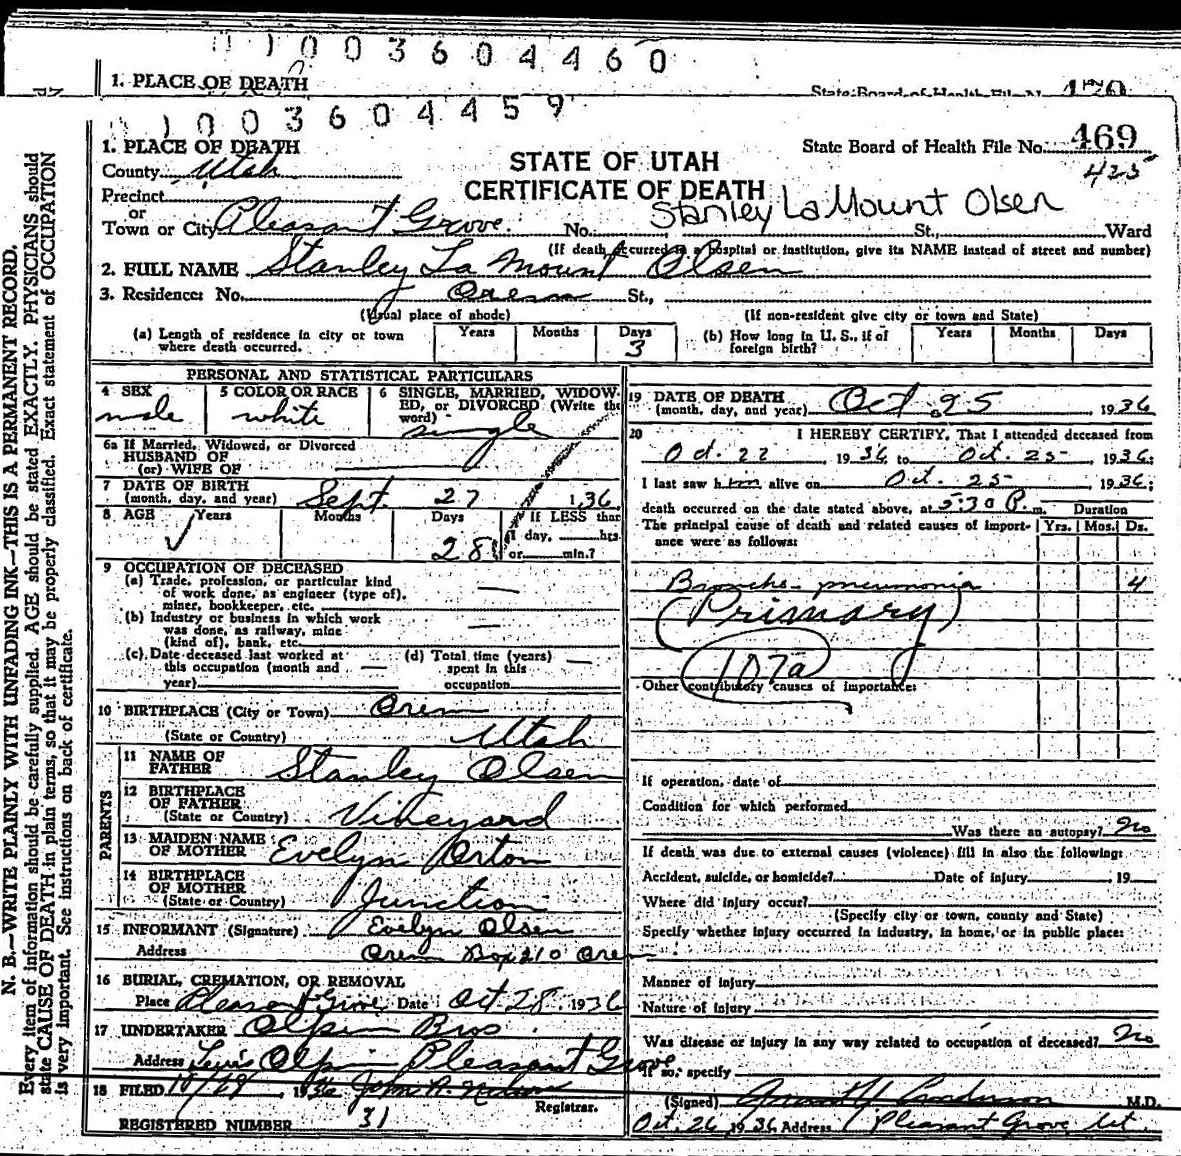 0 1 0 0 3 6 0 4 4 6 0
1. PLACE OF DEATH
State Board of Health File No. 470
0 1 0 0 3 6 0 4 4 5 9
1. PLACE OF DEATH
State Board of Health File No. 469
425
County Utah
STATE OF UTAH
CERTIFICATE OF DEATH
Precinct
or
Stanley LaMount Olsen
Town or City Pleasant Grove. No. St., Ward
(If death occurred in a hospital or institution, give its NAME instead of street and number)
2. FULL NAME Stanley La Mount Olsen
3. Residence: No. Orem St.,
(Usual place of abode) (If non-resident give city or town and State)
(a) Length of residence in city or town where death occurred. Years Months Days 3
(b) How long in U. S., if of foreign birth? Years Months Days
PERSONAL AND STATISTICAL PARTICULARS
4 SEX male
5 COLOR OR RACE white
6 SINGLE, MARRIED, WIDOWED, or DIVORCED (Write the word) single
6a If Married, Widowed, or Divorced
HUSBAND OF
(or) WIFE OF
7 DATE OF BIRTH
(month, day, and year) Sept. 27 1,36
8 AGE Years Months Days 28 If LESS than
1 day, hrs.
or min.?
9 OCCUPATION OF DECEASED
(a) Trade, profession, or particular kind
of work done, as engineer (type of),
miner, bookkeeper, etc. —
(b) Industry or business in which work
was done, as railway, mine
(kind of), bank, etc. —
(c) Date deceased last worked at
this occupation (month and
year) —
(d) Total time (years)
spent in this
occupation —
10 BIRTHPLACE (City or Town) Orem
(State or Country) Utah
PARENTS
11 NAME OF
FATHER Stanley Olsen
12 BIRTHPLACE
OF FATHER
(State or Country) Vineyard
13 MAIDEN NAME
OF MOTHER Evelyn Orton
14 BIRTHPLACE
OF MOTHER
(State or Country) Junction
15 INFORMANT (Signature) Evelyn Olsen
Address Orem Box 210 Orem
16 BURIAL, CREMATION, OR REMOVAL
Place Pleasant Grove Date Oct 28, 1936
17 UNDERTAKER Olpin Bros.
Address Olpin Pleasant Grove
18 FILED 10/28, 1936 John A. Nelson
Registrar.
REGISTERED NUMBER 31
19 DATE OF DEATH
(month, day, and year) Oct 25 1936
20 I HEREBY CERTIFY, That I attended deceased from
Oct. 22, 1936, to Oct. 25- 1936;
I last saw him alive on Oct. 25- 1936;
death occurred on the date stated above, at 5:30 P. m. Duration
The principal cause of death and related causes of importance were as follows: Yrs. Mos. Ds.
Broncho-pneumonia 4
(Primary)
107a
Other contributory causes of importance:
If operation, date of
Condition for which performed
Was there an autopsy? No
If death was due to external causes (violence) fill in also the following:
Accident, suicide, or homicide? Date of injury , 19
Where did injury occur?
(Specify city or town, county and State)
Specify whether injury occurred in industry, in home, or in public place:
Manner of injury
Nature of injury
Was disease or injury in any way related to occupation of deceased? No
If so, specify
(Signed) Anderson M.D.
Oct. 26, 1936 Address Pleasant Grove Ut.
N. B.—WRITE PLAINLY WITH UNFADING INK—THIS IS A PERMANENT RECORD.
Every item of information should be carefully supplied. AGE should be stated EXACTLY. PHYSICIANS should
state CAUSE OF DEATH in plain terms, so that it may be properly classified. Exact statement of OCCUPATION
is very important. See instructions on back of certificate.